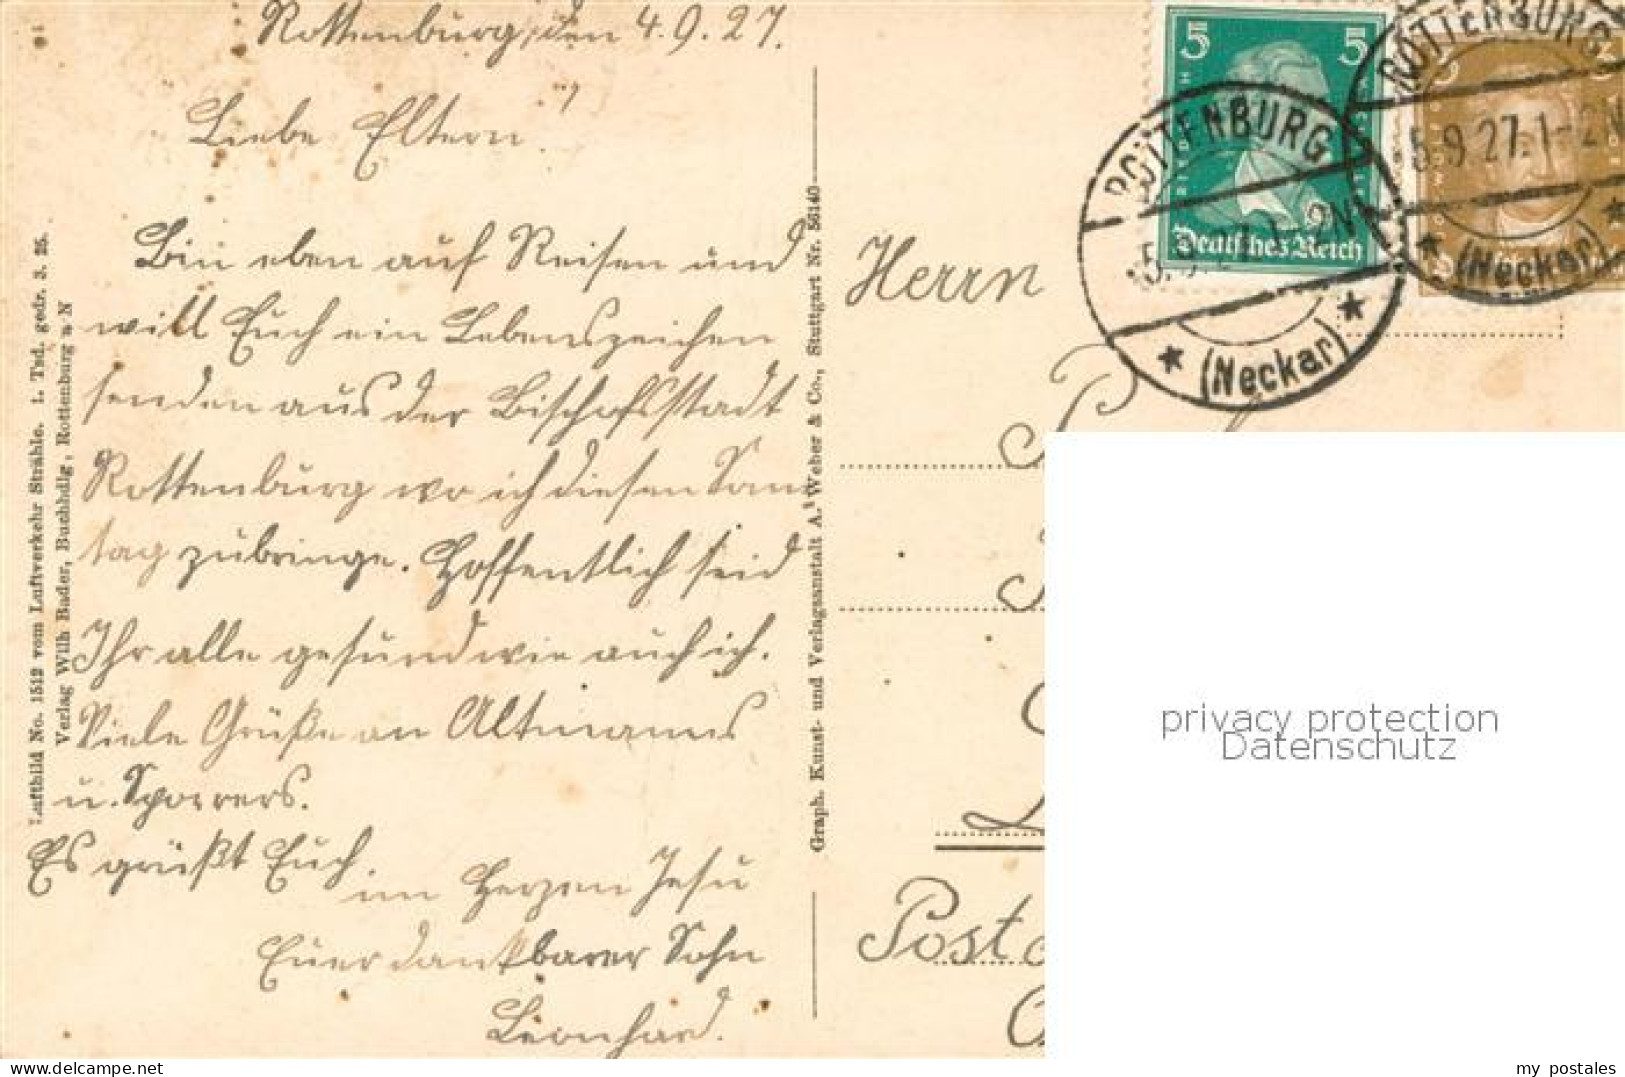 Rottenburg, den 4.9.27.
Liebe Eltern!
Bin eben auf Reisen und
will Euch ein Lebenszeichen
senden aus der Bischofsstadt
Rottenburg wo ich diesen Sonn
tag zubringe. Hoffentlich seid
Ihr alle gesund wie auch ich.
Viele Grüße an Altmanns
u. Sporrers.
Es grüßt Euch
im Herzen Jesu
Euer dankbarer Sohn
Leonhard.
Luftbild No. 1512 vom Luftverkehr Strähle. 1. Tsd. gedr. 3. 25.
Verlag Wilh Bader, Buchhdlg, Rottenburg a N
Graph. Kunst- und Verlagsanstalt A. Weber & Co., Stuttgart Nr. 56140
Herrn
Post
5 5
Deutsches Reich
ROTTENBURG
5.9.27.1-2N
* (Neckar) *
3 3
ROTTENBURG
5.9.27.1-2N
* (Neckar) *
privacy protection
Datenschutz
delcampe.net
my_postales